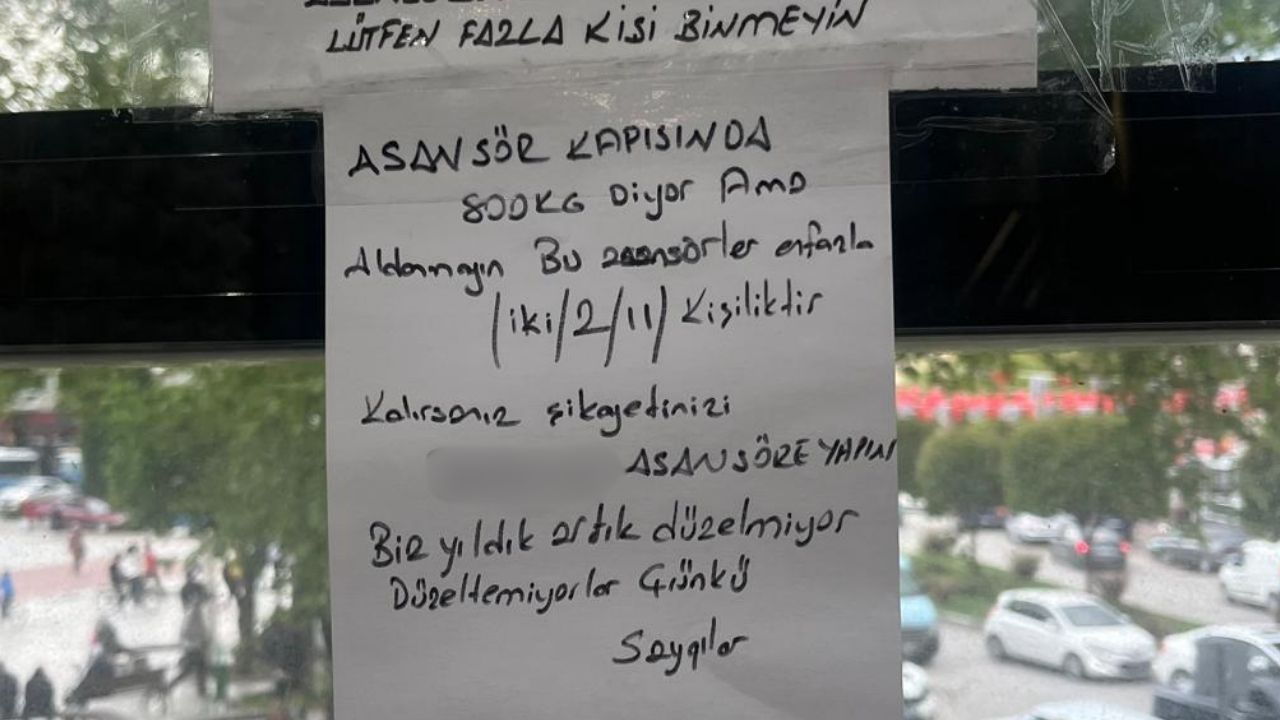 LÜTFEN FAZLA KİSİ BİNMEYİN
ASANSÖR KAPISINDA
800KG Diyor Ama
Aldanmayın Bu asansörler enfazla
/iki/2/11/ Kişiliktir
Kalırsanız şikayetinizi
ASANSÖRE YAPIN
Biz yıldık artık düzelmiyor
Düzeltemiyorlar Çünkü
Saygılar